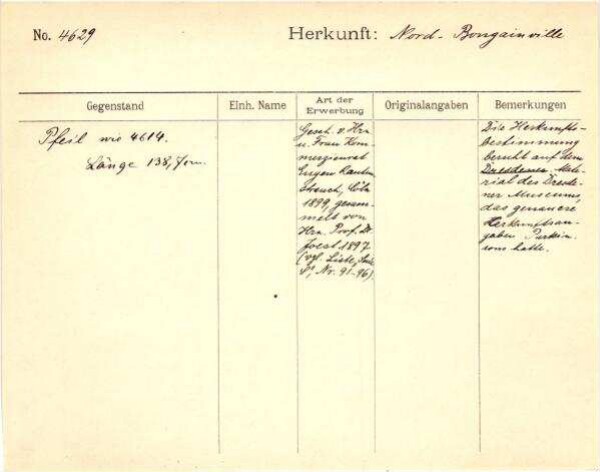 No. 4629
Herkunft: Nord-Bougainville
Gegenstand
Einh. Name
Art der Erwerbung
Originalangaben
Bemerkungen
Pfeil wie 4614.
Länge 138,7cm.
Gesch. v. Hrn
u. Frau Kom-
merzienrat
Eugen Rauten-
strauch, Cöln
1899, gesam-
melt von
Hrn. Prof. Dr
Joest 1897
(vgl. Liste,
Nr. 91-96).
Die Herkunfts-
bestimmung
beruht auf dem
Dresdener Mate-
rial des Dresde-
ner Museums,
das genauere
Herkunftsan-
gaben Parkin-
sons hatte.